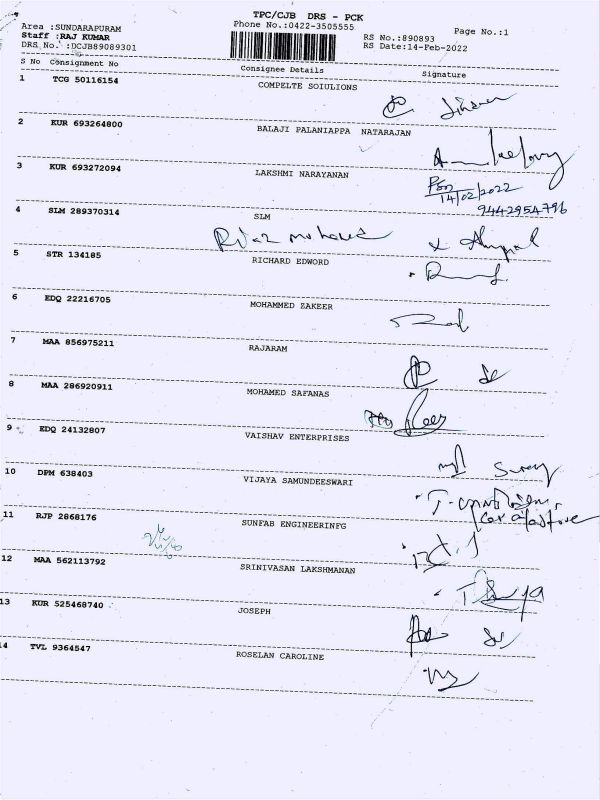 TPC/CJB DRS - PCK
Phone No.:0422-3505555
Area :SUNDARAPURAM
Staff :RAJ KUMAR
DRS No. :DCJB89089301
RS No.:890893
RS Date:14-Feb-2022
Page No.:1
S No Consignment No Consignee Details Signature
1 TCG 50116154 COMPELTE SOIULIONS
2 KUR 693264800 BALAJI PALANIAPPA NATARAJAN
3 KUR 693272094 LAKSHMI NARAYANAN
14/02/2022
9442954796
4 SLM 289370314 SLM
5 STR 134185 RICHARD EDWORD
6 EDQ 22216705 MOHAMMED ZAKEER
7 MAA 856975211 RAJARAM
8 MAA 286920911 MOHAMED SAFANAS
9 EDQ 24132807 VAISHAV ENTERPRISES
10 DPM 638403 VIJAYA SAMUNDEESWARI
11 RJP 2868176 SUNFAB ENGINEERINFG
12 MAA 562113792 SRINIVASAN LAKSHMANAN
13 KUR 525468740 JOSEPH
14 TVL 9364547 ROSELAN CAROLINE